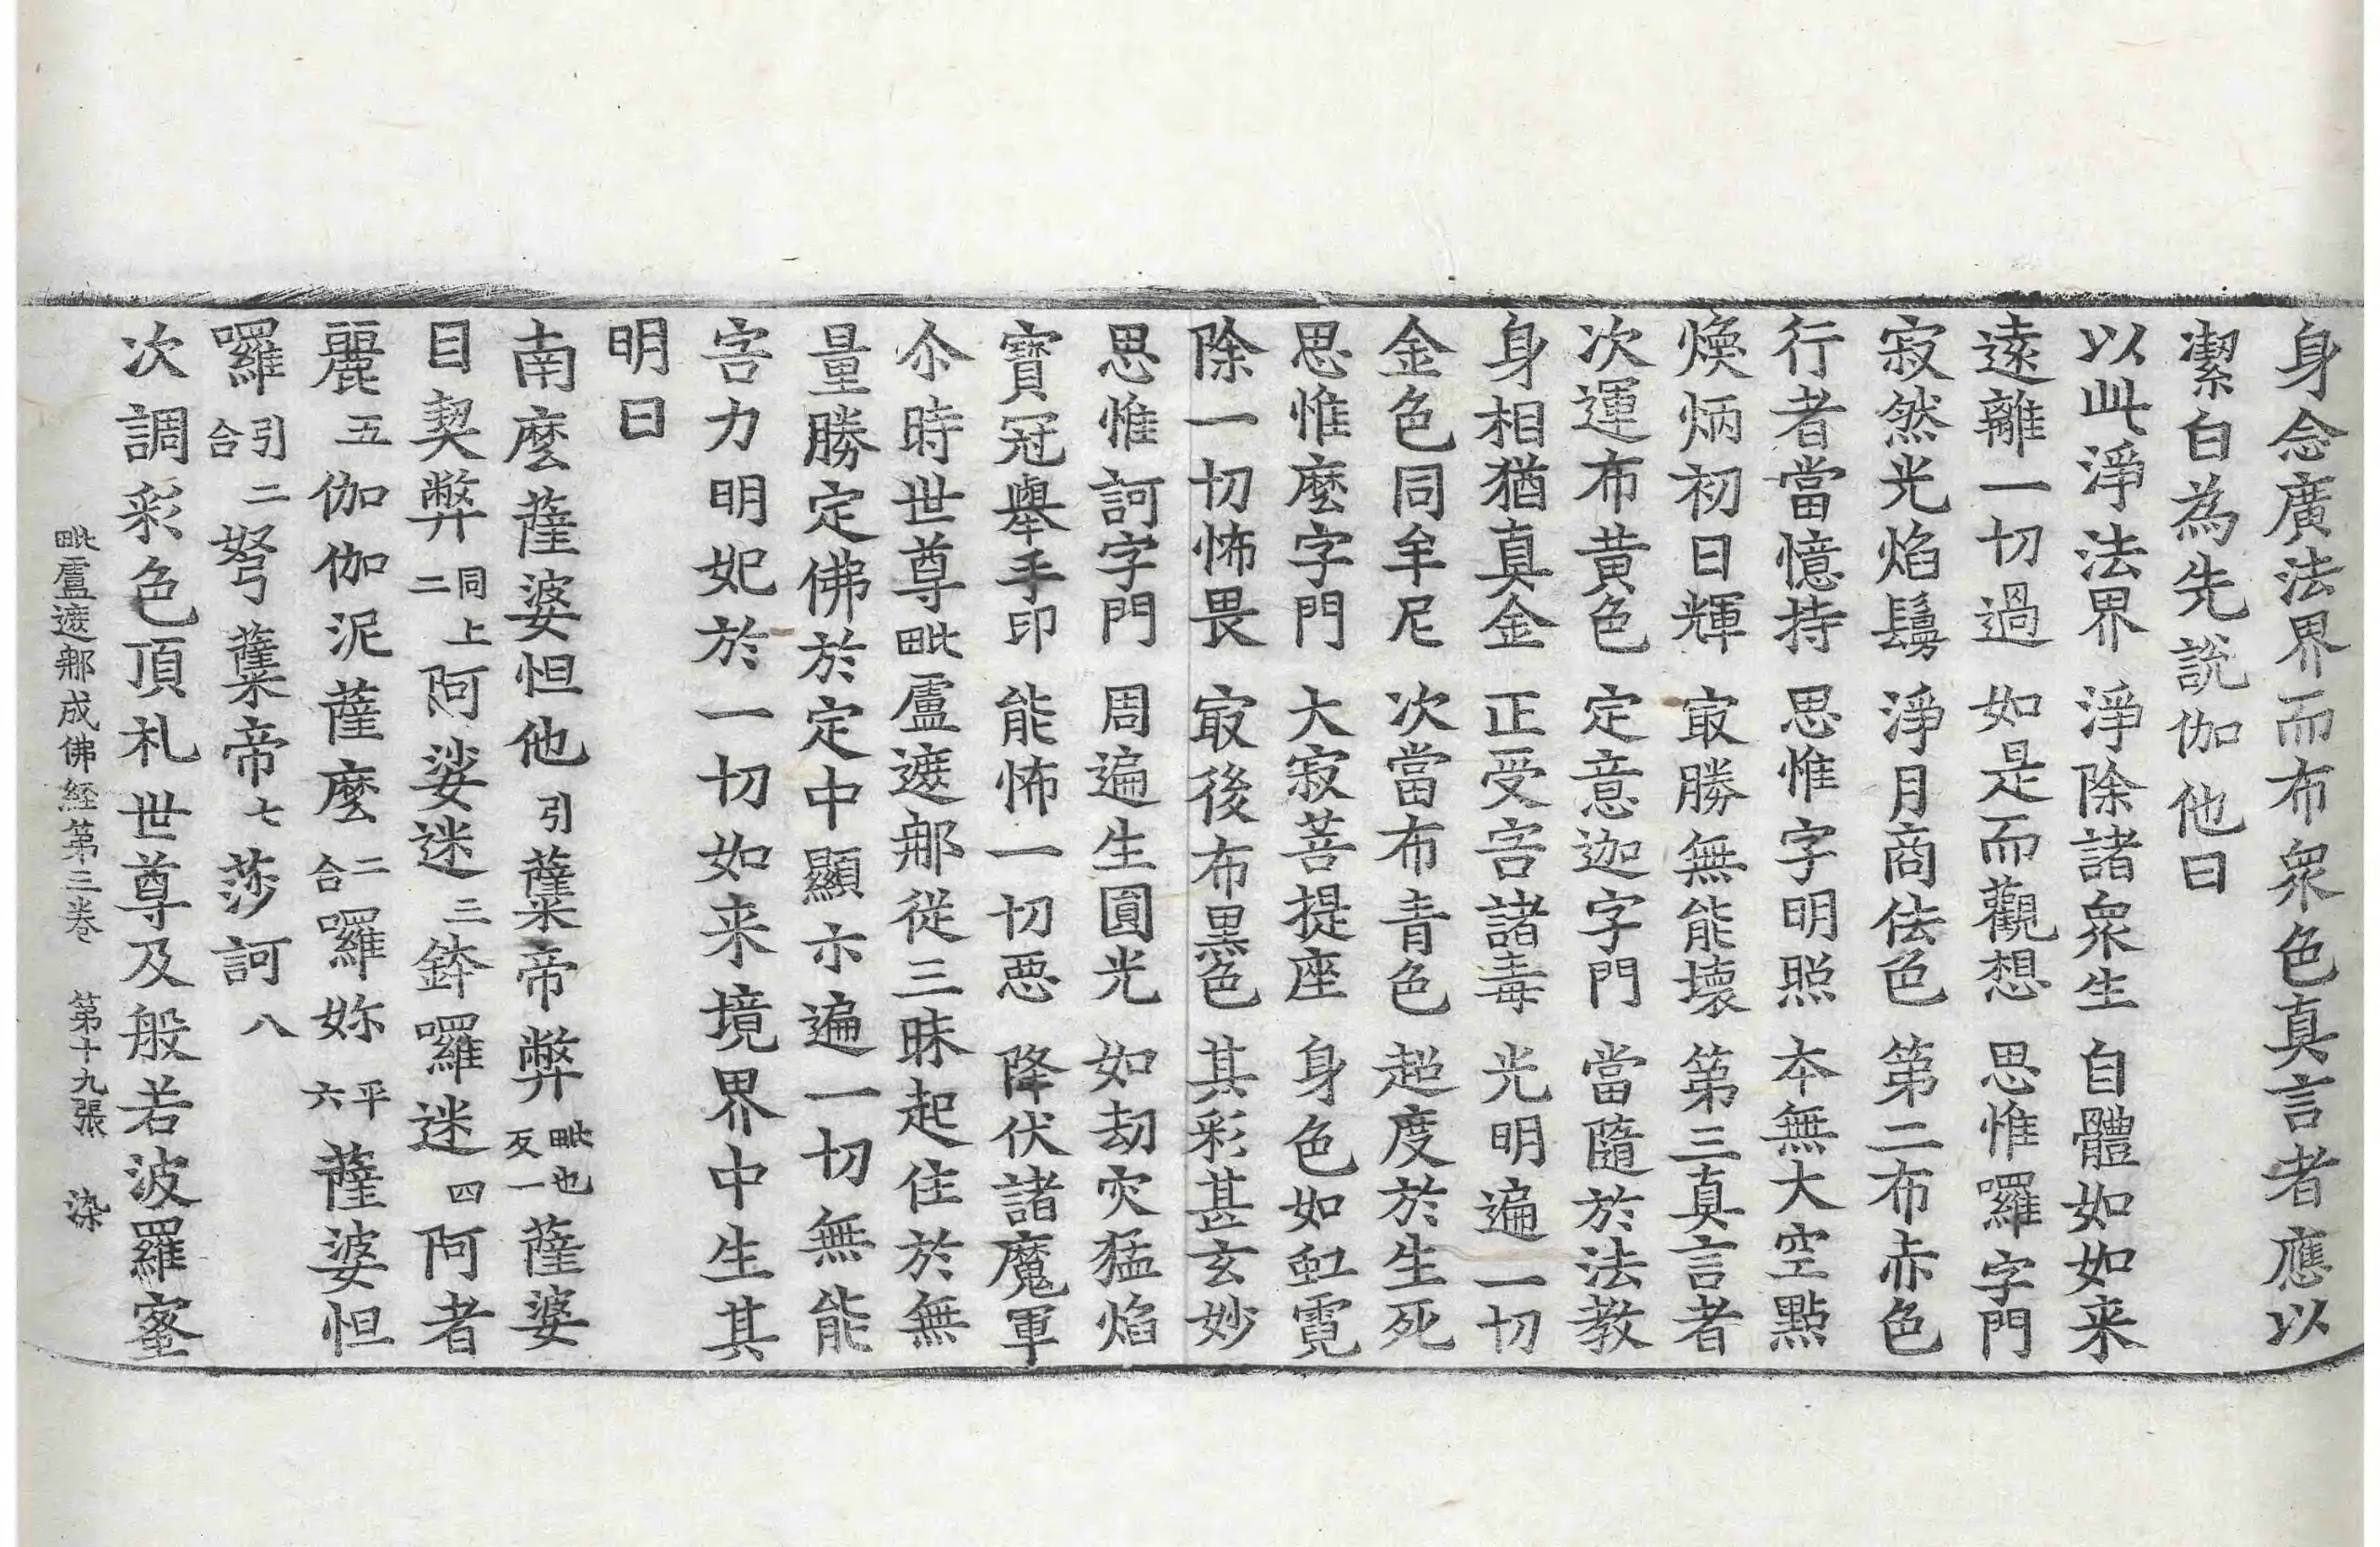 身念廣法界而布衆色真言者應以
潔白為先說伽他曰
以此淨法界　淨除諸衆生　自體如如来
遠離一切過　如是而觀想　思惟囉字門
寂然光焰鬘　淨月商佉色　第二布赤色
行者當憶持　思惟字明照　本無大空點
煥炳初日輝　㝡勝無能壞　第三真言者
次運布黄色　定意迦字門　當隨於法教
身相猶真金　正受害諸毒　光明遍一切
金色同牟尼　次當布青色　超度於生死
思惟麼字門　大寂菩提座　身色如虹霓
除一切怖畏　㝡後布黑色　其彩甚玄妙
思惟訶字門　周遍生圓光　如劫灾猛焰
寶冠舉手印　能怖一切惡　降伏諸魔軍
尒時世尊毗盧遮那從三昧起住於無
量勝定佛於定中顯示遍一切無能
害力明妃於一切如来境界中生其
明曰
南麼薩婆怛他引薩帝弊毗也反一薩婆
目契弊同上二阿娑迷三鉢囉迷四阿者
麗五伽伽泥薩麼二合囉妳平六薩婆怛
囉引二合弩蘖帝七莎訶八
次調彩色頂札世尊及般若波羅蜜
毗盧遮那成佛経第三卷　第十九張　染